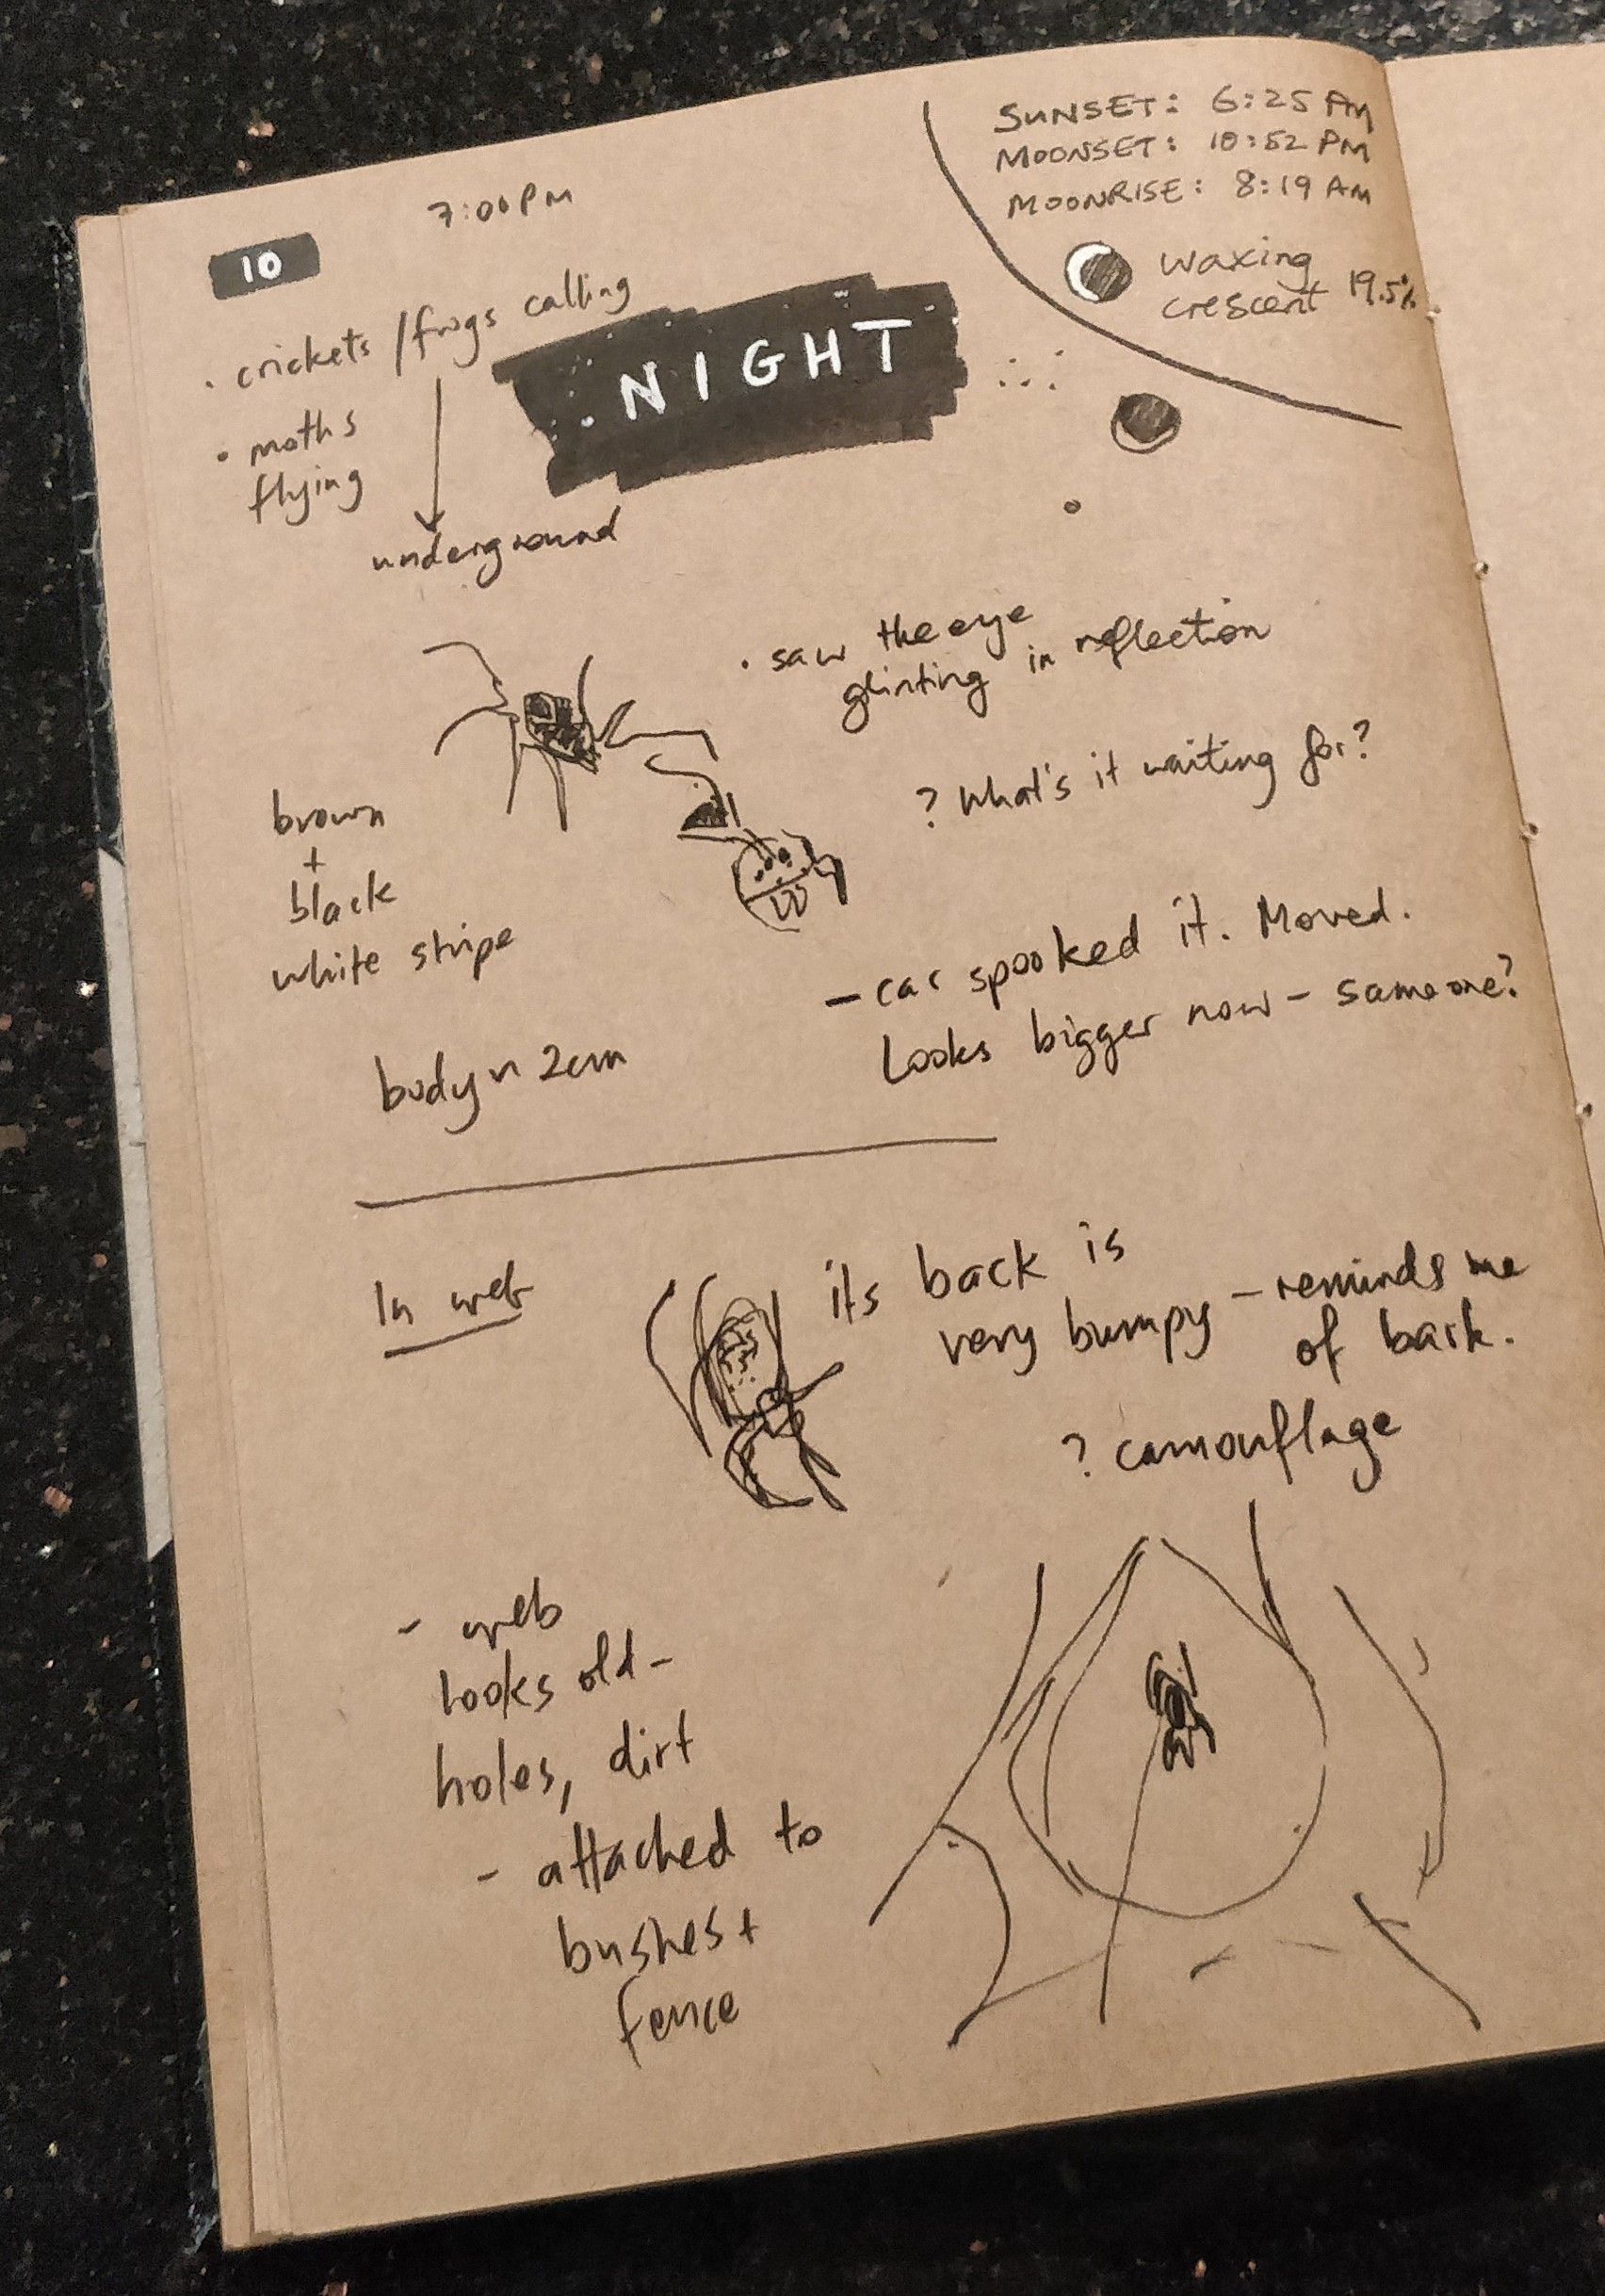 7:00 PM
10
SUNSET: 6:25 PM
MOONSET: 10:52 PM
MOONRISE: 8:19 AM
waxing
crescent 19.5%
NIGHT
• crickets / frogs calling
• moths
flying
underground
• saw the eye
glinting in reflection
? What's it waiting for?
brown
+
black
white stripe
– car spooked it. Moved.
Looks bigger now – same one?
body ~ 2cm
In web
its back is
very bumpy – reminds me
of bark.
? camouflage
- web
looks old -
holes, dirt
- attached to
bushes +
fence